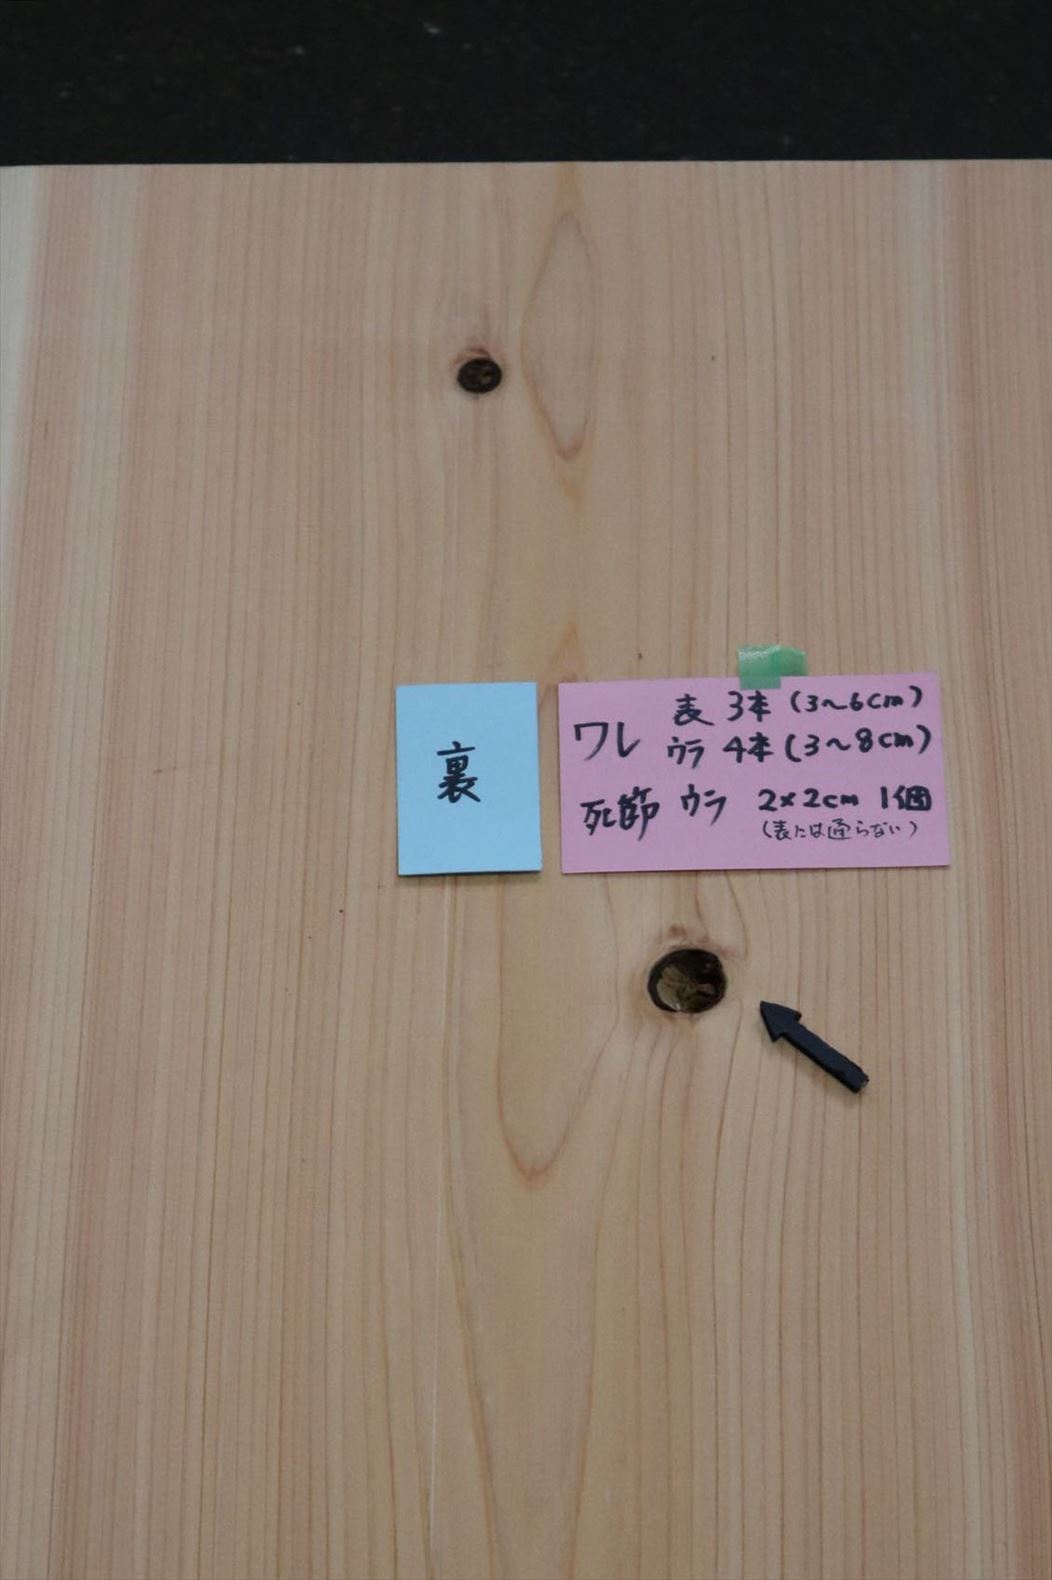 裏
ワレ 表 3本 (3〜6cm)
ウラ 4本 (3〜8cm)
死節 ウラ 2×2cm 1個
(表には通らない)